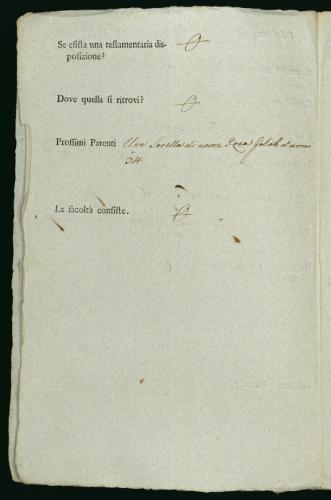 Se esista una testamentaria dis-
posizione?
Dove quella si ritrovi?
Prossimi Parenti Una Sorella di nome Roza Golob d'anni
34
La facoltà consiste.